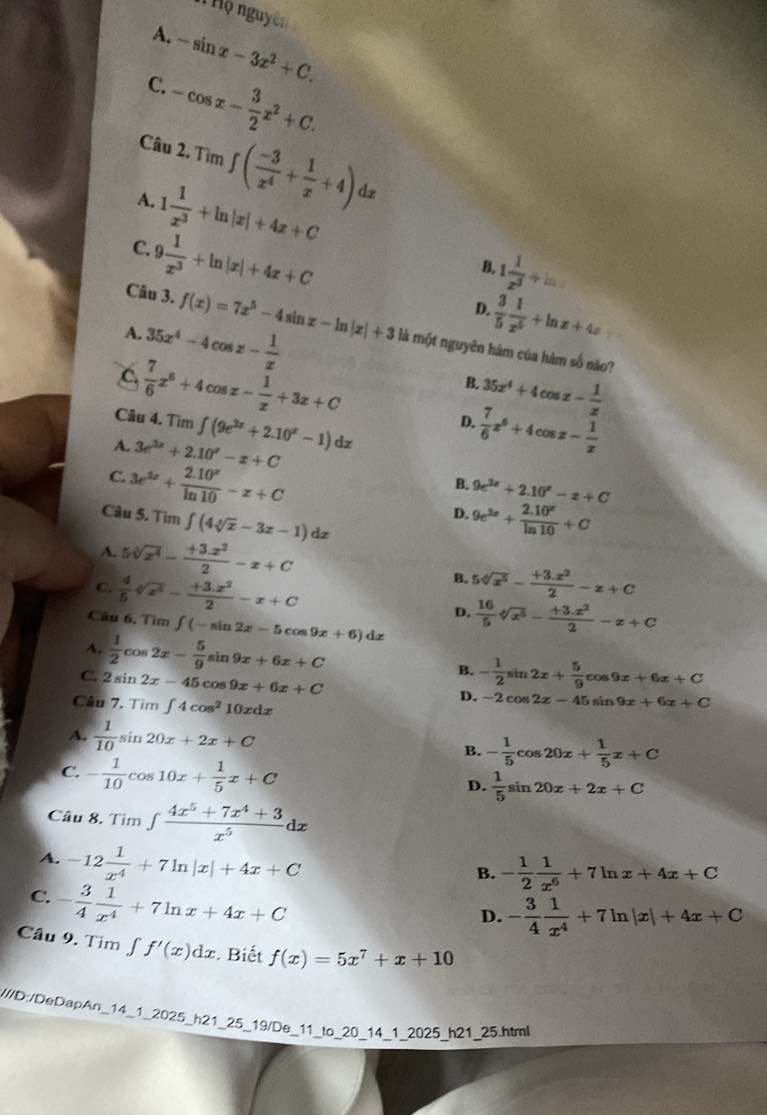 nguyên
A. $-\sin x - 3x^2 + C.$
C. $-\cos x - \frac{3}{2}x^2 + C.$
Câu 2. Tìm $\int \left(\frac{-3}{x^4} + \frac{1}{x} + 4\right) dx$
A. $1\frac{1}{x^3} + \ln|x| + 4x + C$
B. $1\frac{1}{x^3} +$
C. $9\frac{1}{x^3} + \ln|x| + 4x + C$
D. $\frac{3}{5}\frac{1}{x^5} + \ln x + 4x$
Câu 3. $f(x) = 7x^5 - 4\sin x - \ln|x| + 3$ là một nguyên hàm của hàm số nào?
A. $35x^4 - 4\cos x - \frac{1}{x}$
B. $35x^4 + 4\cos x - \frac{1}{x}$
C. $\frac{7}{6}x^6 + 4\cos x - \frac{1}{x} + 3x + C$
D. $\frac{7}{6}x^6 + 4\cos x - \frac{1}{x}$
Câu 4. Tìm $\int (9e^{3x} + 2.10^x - 1) dx$
A. $3e^{3x} + 2.10^x - x + C$
B. $9e^{3x} + 2.10^x - x + C$
C. $3e^{3x} + \frac{2.10^x}{\ln 10} - x + C$
D. $9e^{3x} + \frac{2.10^x}{\ln 10} + C$
Câu 5. Tìm $\int (4\sqrt[4]{x} - 3x - 1) dx$
A. $5\sqrt[5]{x^4} - \frac{+3.x^2}{2} - x + C$
B. $5\sqrt[4]{x^5} - \frac{+3.x^2}{2} - x + C$
C. $\frac{4}{5}\sqrt[4]{x^5} - \frac{+3.x^2}{2} - x + C$
D. $\frac{16}{5}\sqrt[4]{x^5} - \frac{+3.x^2}{2} - x + C$
Câu 6. Tìm $\int (-\sin 2x - 5\cos 9x + 6) dx$
A. $\frac{1}{2}\cos 2x - \frac{5}{9}\sin 9x + 6x + C$
B. $-\frac{1}{2}\sin 2x + \frac{5}{9}\cos 9x + 6x + C$
C. $2\sin 2x - 45\cos 9x + 6x + C$
D. $-2\cos 2x - 45\sin 9x + 6x + C$
Câu 7. Tìm $\int 4\cos^2 10x dx$
A. $\frac{1}{10}\sin 20x + 2x + C$
B. $-\frac{1}{5}\cos 20x + \frac{1}{5}x + C$
C. $-\frac{1}{10}\cos 10x + \frac{1}{5}x + C$
D. $\frac{1}{5}\sin 20x + 2x + C$
Câu 8. Tìm $\int \frac{4x^5 + 7x^4 + 3}{x^5} dx$
A. $-12\frac{1}{x^4} + 7\ln|x| + 4x + C$
B. $-\frac{1}{2}\frac{1}{x^6} + 7\ln x + 4x + C$
C. $-\frac{3}{4}\frac{1}{x^4} + 7\ln x + 4x + C$
D. $-\frac{3}{4}\frac{1}{x^4} + 7\ln|x| + 4x + C$
Câu 9. Tìm $\int f'(x)dx$. Biết $f(x) = 5x^7 + x + 10$
///D:/DeDapAn_14_1_2025_h21_25_19/De_11_to_20_14_1_2025_h21_25.html